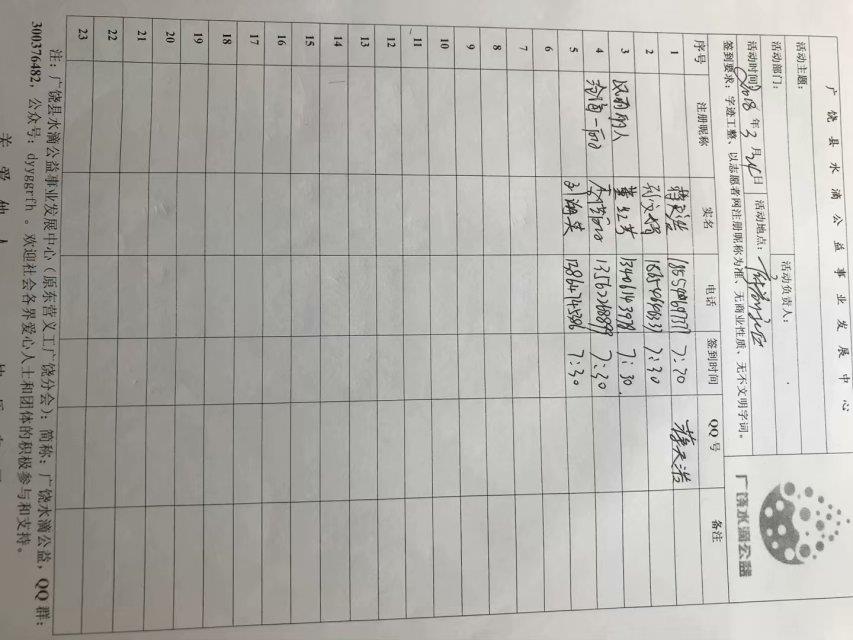 广饶县水滴公益事业发展中心
活动主题：
活动部门： 活动负责人：
活动时间 2018 年 3 月 24 日 活动地点：
签到要求：字迹工整、以志愿者网注册昵称为准、无商业性质、无不文明字词。
广饶水滴公益
序号 注册昵称 实名 电话 签到时间 QQ号 备注
1 7:20
2 7:30
3 风雨的人 13406143978 7:30
4 13562268899 7:30
5 7:30
6
7
8
9
10
11
12
13
14
15
16
17
18
19
20
21
22
23
注：广饶县水滴公益事业发展中心（原东营义工广饶分会）；简称：广饶水滴公益，QQ 群：
300376482，公众号：dyyggrfh 。欢迎社会各界爱心人士和团体的积极参与和支持。
关 爱 他 人